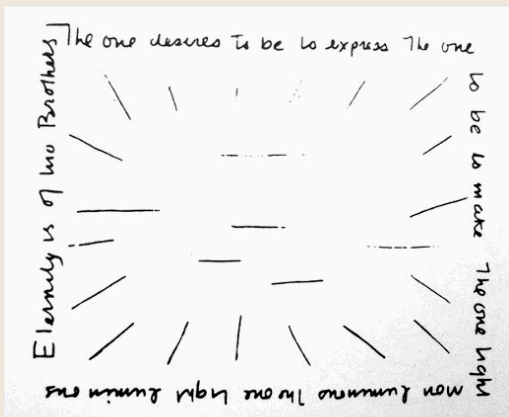 The one desires To be to express The one
to be to make The one light
more luminous The one light luminous
Eternity is of two Brothers